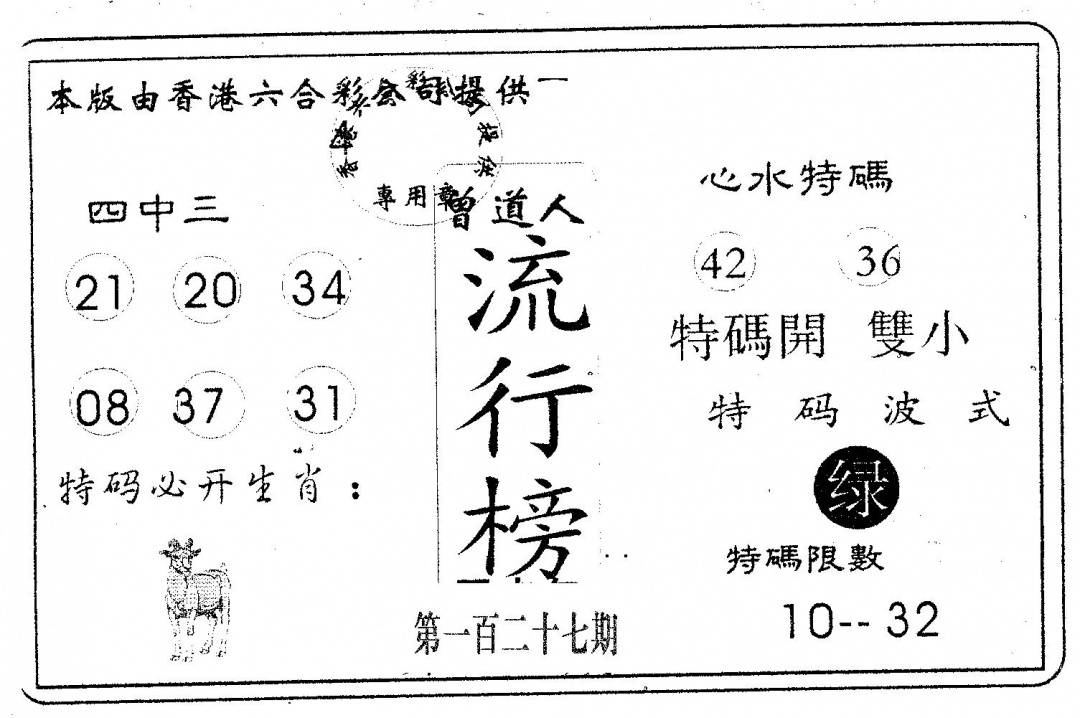 本版由香港六合彩公司提供
專用章
四中三
21 20 34
08 37 31
特码必开生肖：
曾道人
流行榜
第一百二十七期
心水特碼
42 36
特碼開 雙小
特码波式
绿
特碼限數
10--32